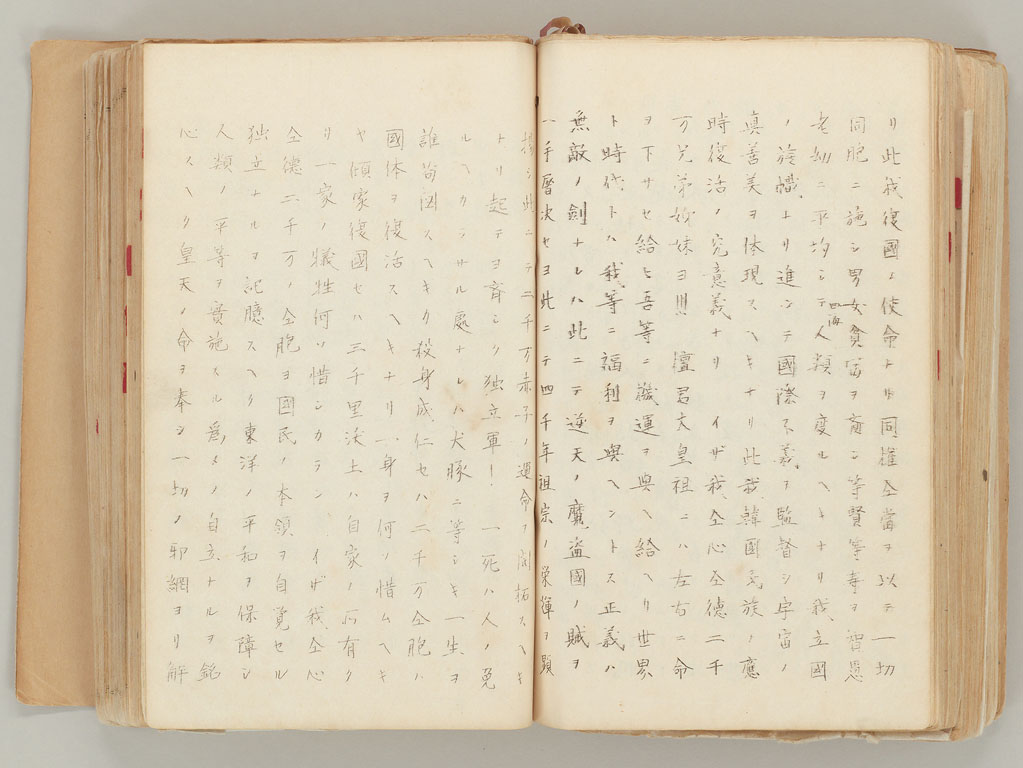 リ此我復國ノ使命ト○同權仝當ヲ以テ一切
同胞ニ施シ男女貧富ヲ齊シ等賢等壽ヲ智愚
老幼ニ平均シテ四海人類ヲ度ルヘキナリ我立國
ノ旗幟ナリ進ンテ國際不義ヲ監督シ宇宙ノ
眞善美ヲ体現スヘキナリ此我韓國民族ノ應
時復活ノ究意義ナリ イザ我仝心仝德二千
万兄弟姉妹ヨ!!! 檀君大皇祖ニハ左右ニ命
ヲ下サセ給ヒ吾等ニ機運ヲ與ヘ給ヘリ世界
ト時代トハ我等ニ福利ヲ與ヘントス正義ハ
無敵ノ劍ナレハ此ニテ逆天ノ魔盜國ノ賊ヲ
一手屠決セヨ此ニテ四千年祖宗ノ栄輝ヲ顯
揚シ此ニテ二千万赤子ノ運命ヲ開拓スヘキ
ナリ起テヨ齊シク独立軍! 一死ハ人ノ免
ルヘカラサル處ナレハ犬豚ニ等シキ一生ヲ
誰苟図スヘキカ殺身成仁セハ二千万仝胞ハ
國体ヲ復活スヘキナリ一身ヲ何ノ惜ムヘキ
ヤ傾家復國セハ三千里沃土ハ自家ノ所有ナ
リ一家ノ犠牲何ソ惜シカラン イザ我仝心
仝德二千万ノ仝胞ヨ國民ノ本領ヲ自覚セル
独立ナルヲ記臆スヘク東洋ノ平和ヲ保障シ
人類ノ平等ヲ實施スル爲メノ自立ナルヲ銘
心スヘク皇天ノ命ヲ奉シ一切ノ邪網ヨリ解